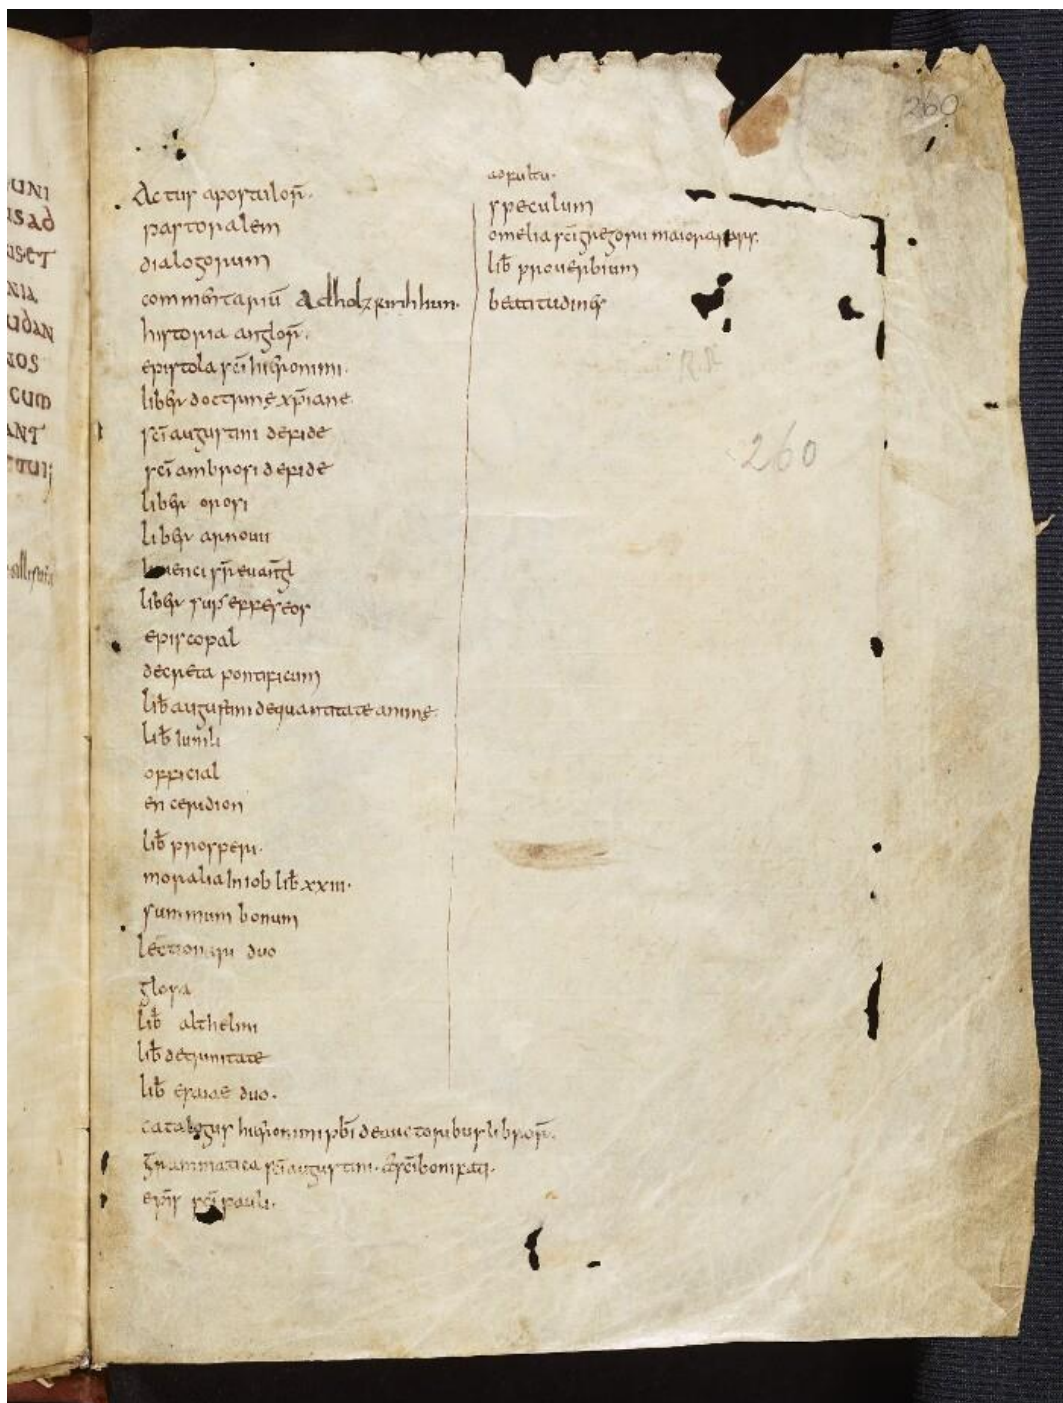 260
Actus apostolorū·
pastoralem
dialogorum
commentariū adholzkirihhun·
historia anglorū·
epistola sci hieronimi·
liber doctrine xpiane·
sci augustini defide
sci ambrosi defide
liber orosi
liber arnouii
iuuenci spr euangl
liber
episcopal
decreta pontificum
lib augustini dequantitate anime·
lib iunili
official
enceridion
lib prosperi·
moralia In iob lib xxiii·
summum bonum
lectionari duo
glosa
lib althelmi
lib detrinitate
lib esaiae duo·
catalogus hieronimi pbi deauctoribus librorū·
Grammatica sci augustini· & sci bonifati·
epis sci pauli·
adfultu·
speculum
omelia sci gregorii maiora
lib prouerbium
beatitudines
260
UNI
sad
NIA
UDAN
NOS
CUM
ANT